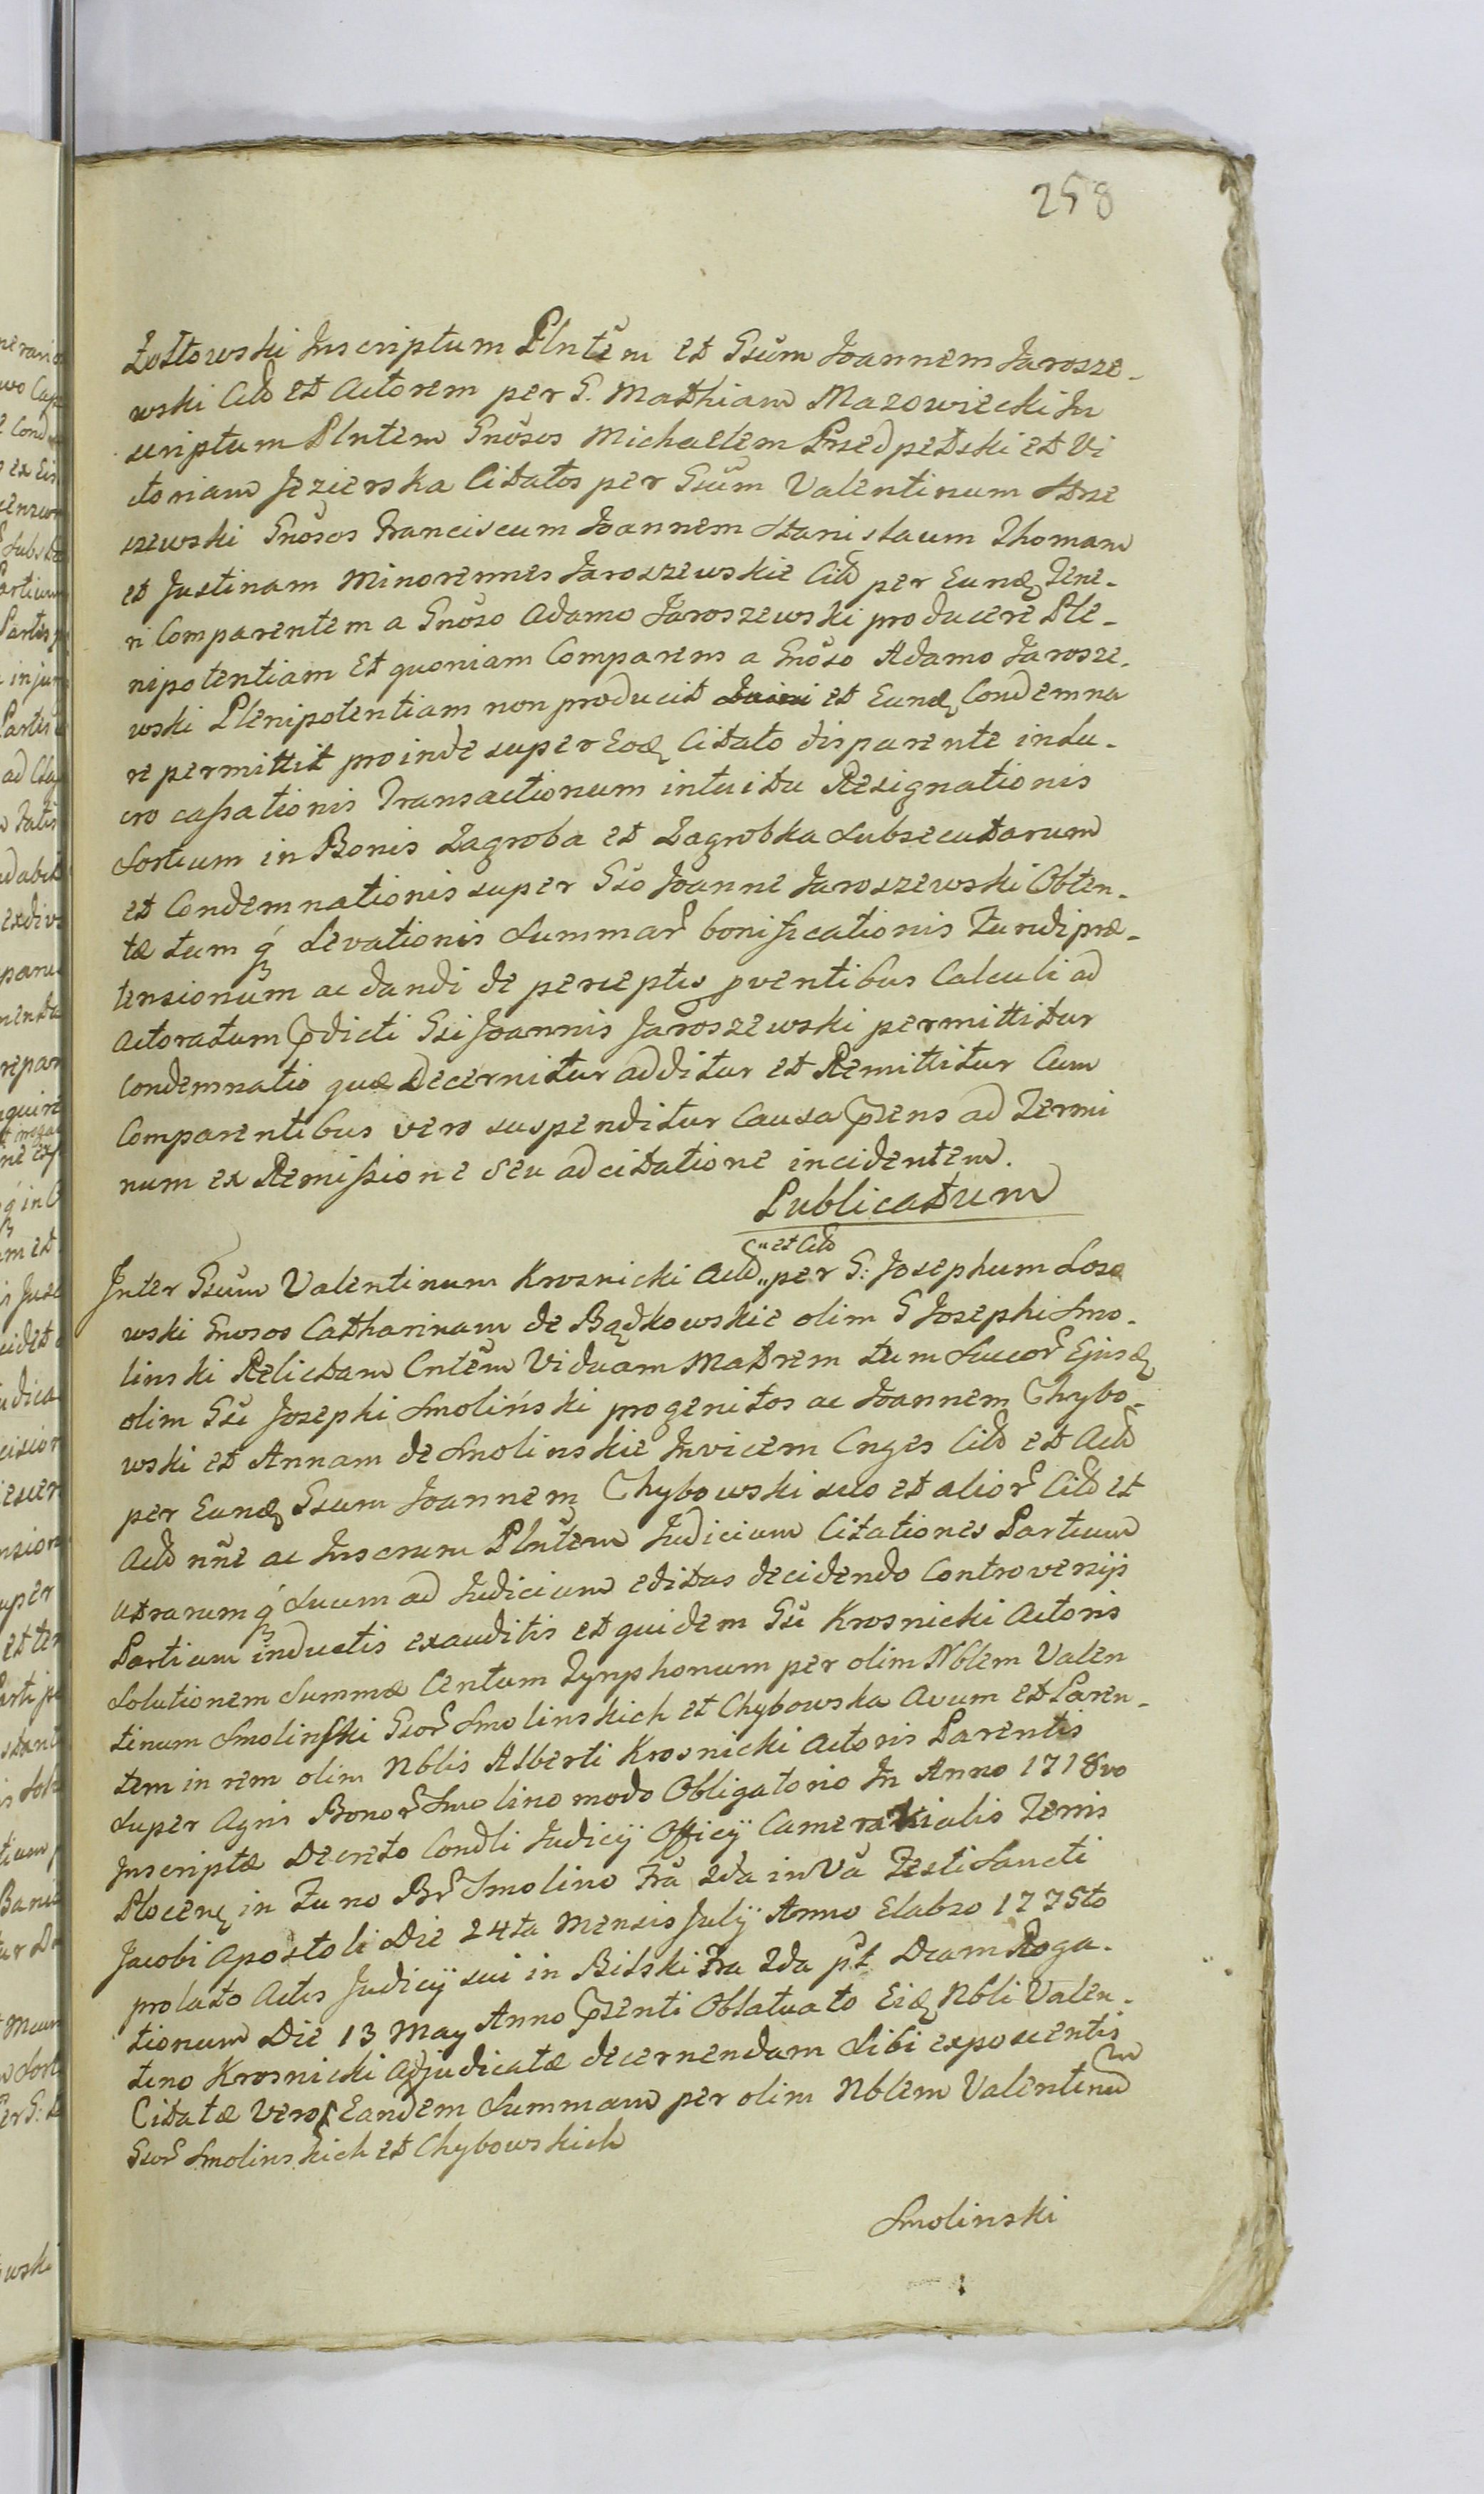 258
Żołtowski Inscriptum Plntem et Gsum Joannem Jarosze-
wski Citt et Actorem per G. Mathiam Mazowiecki In
scriptum Plntem Gnosos Michaelem Przedpełski et Vi
ctoriam Jezierska Citatos per Gsum Valentinum Strze
szewski Gnosos Franciscum Joannem Stanislaum Thomam
et Justinam Minorennes Jaroszewskie Citt per Eundq Tene-
ri Comparentem a Gnoso Adamo Jaroszewski producere Ple-
nipotentiam Et quoniam Comparens a Gnoso Adamo Jarosze-
wski Plenipotentiam non producit et Eundq Condemna
re permittit proinde super Eodq Citato disparente in Lu-
cro cassationis Transactionum intuitu Resignationis
Sortium in Bonis Zagroba et Zagrobka Subsecutarum
et Condemnationis super Gso Joanne Jaroszewski Obten-
tæ tum q Levationis Summar bonificationis Fundi præ-
tensionum ac dandi de perceptis pventibus Calculi ad
Actoratum Pdicti Gsi Joannis Jaroszewski permittitur
Condemnatio quæ Decernitur additur et Remittitur Cum
Comparentibus vero suspenditur Causa Psens ad Termi
num ex Remissione seu adcitatione incidentem.
Publicatum
" et Citt
Inter Gsum Valentinum Krosnicki Actt " per G: Josephum Loso
wski Gnosos Catharinam de Bądkowskie olim G Josephi Smo-
linski Relictam Cntem Viduam Matrem tum Succor Ejusdq
olim Gsi Josephi Smoliński progenitos ac Joannem Chybo-
wski et Annam de Smolinskie Invicem Cnges Citt et Actt
per Eundq Gsum Joannem Chybowski suo et alior Citt et
Actt nne ac Inscrum Plntem Judicium Citationes Partium
utrarumq Suum ad Judicium editas decidendo Controversijs
Partium inductis exauditis et quidem Gsi Krosnicki Actoris
Solutionem Summæ Centum Tynphonum per olim Nblem Valen
tinum Smolinski Gsor Smolinskich et Chybowska Avum et Paren-
tem in rem olim Nblis Alberti Krosnicki Actoris Parentis
super Agris Bonor Smolino modo Obligatorio In Anno 1718vo
Inscriptæ Decreto Condli Judicij Officij Camerarialis Terris
Plocenq in Funo Br Smolino Fra 2da in Va Festi Sancti
Jacobi Apostoli Die 24ta Mensis Julij Anno Elabso 1775to
prolato Actis Judicij sui in Bilski Fra 2da pt Dcam Roga-
tionum Die 13 May Anno Psenti Oblatuato Eidq Nbli Valen-
tino Krosnicki Adjudicatæ decernendam Sibi exposcentis
Citatæ Vero Eandem Summam per olim Nblem Valentinu
Gsor Smolinskich et Chybowskich
Smolinski